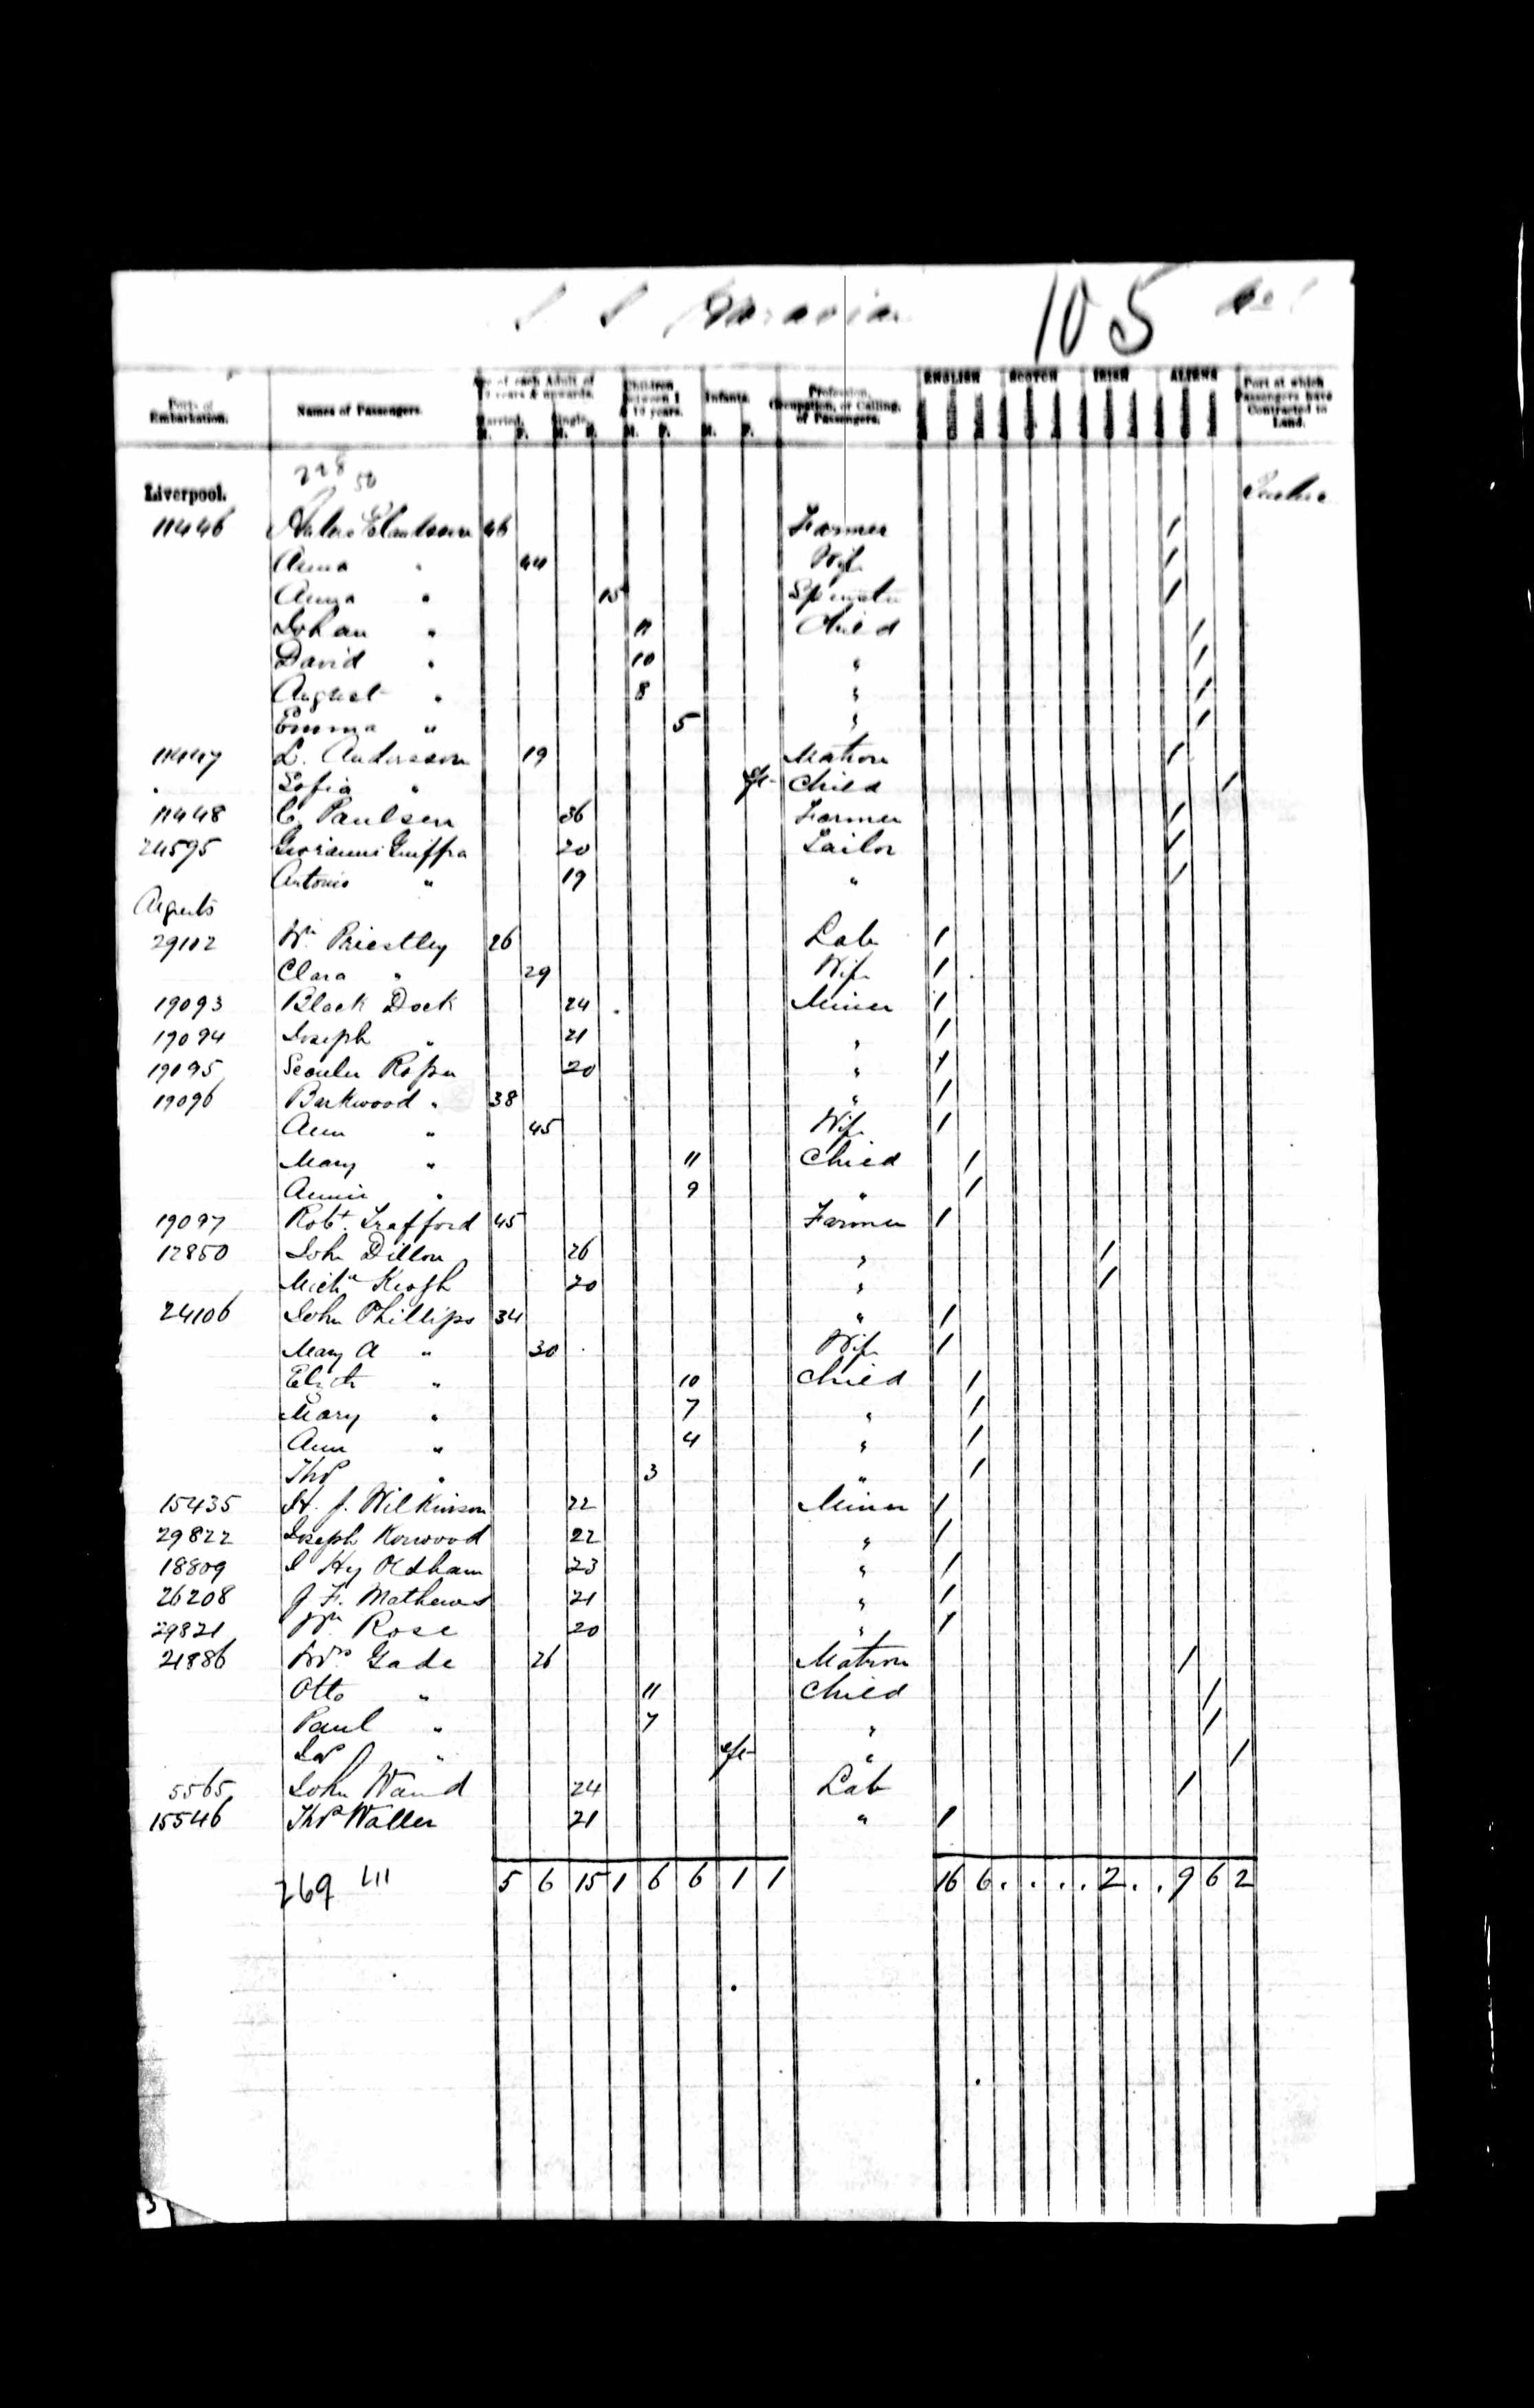 S S Moravian 105
Ports of Embarkation. Names of Passengers. Age of each Adult of 12 years & upwards. Children between 1 & 12 years. Infants. Profession, Occupation, or Calling, of Passengers. ENGLISH SCOTCH IRISH ALIENS Port at which Passengers have Contracted to Land.
Married. Single.
M. F. M. F. M. F. M. F.
Liverpool.
11446 46 Farmer /
Anna " 44 Wife /
Anna " 15 Spinster /
Johan " 11 Child /
David " 10 " /
August " 8 " /
Emma " 5 " /
11447 L. Andersson 19 Matron /
" Sofia " Child /
11448 C. Paulsen 36 Farmer /
24595 20 /
Antonio " 19 " /
Agents
29112 Wm Priestley 26 Lab /
Clara " 29 Wife /
19093 Black Dock 24 Miner /
19094 Joseph " 21 " /
19095 20 " /
19096 Barkwood " 38 " /
Ann " 45 Wife /
Mary " 11 Child /
Annie " 9 " /
19097 Robt. Trafford 45 Farmer /
12850 John Dillon 26 " /
Michl Keogh 20 " /
24106 John Phillips 34 " /
Mary A " 30 Wife /
Elizth " 10 Child /
Mary " 7 " /
Ann " 4 " /
Thos " 3 " /
15435 H. J. Wilkinson 22 Miner /
29822 Joseph Norwood 22 " /
18809 J Hy Oldham 23 " /
26208 J F. Mathews 21 " /
29821 Wm Rose 20 " /
21886 Mrs. Gade 26 Matron /
Otto " 11 Child /
Paul " 7 " /
" " /
5565 John Wand 24 Lab /
15546 Thos Waller 21 " /
269 111 5 6 15 1 6 6 1 1 16 6 . . . . 2 . . 9 6 2
3